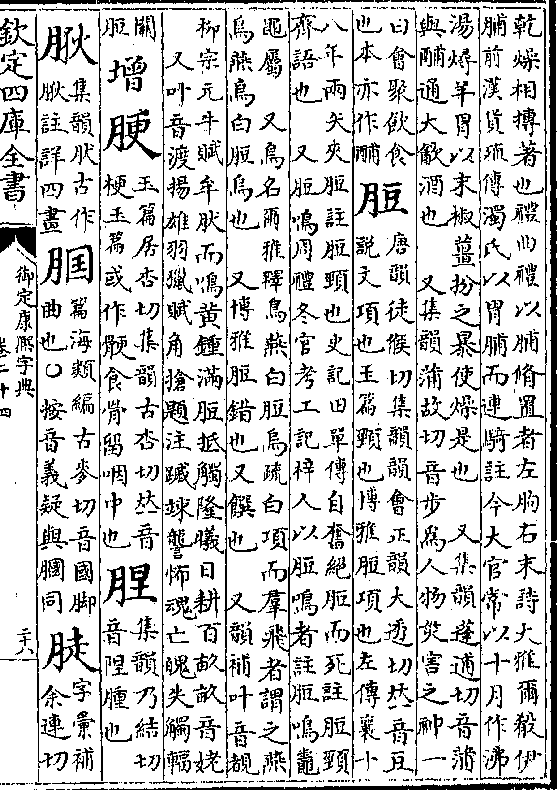 乾燥相搏著也禮曲禮以脯脩置者左朐右末詩大雅爾殽伊
脯前漢貨殖傳濁氏以胃脯而連騎註今大官常以十月作沸
湯燖羊胃以末椒薑坋之暴使燥是也 又集韻蓬逋切音蒲
與酺通大歠酒也 又集韻蒲故切音步為人物烖害之神一
曰會聚飲食
也本亦作酺
脰
唐韻徒候切集韻韻會正韻大透切𠀤音豆
說文項也玉篇頸也博雅脰項也左傳襄十
八年兩矢夾脰註脰頸也史記田單傳自奮絕脰而死註脰頸
齊語也 又脰鳴周禮冬官考工記梓人以脰鳴者註脰鳴鼃
黽屬 又鳥名爾雅釋鳥燕白脰烏疏白項而羣飛者謂之燕
烏燕烏白脰烏也 又博雅脰錯也又饌也 又韻補叶音覩
柳宗元牛賦牟肰而鳴黃鍾滿脰抵觸隆曦日耕百畝畝音姥
又叶音渡揚雄羽獵賦角搶題注蹴竦讋怖魂亡魄失觸輻
關
脰
增
玉篇居杏切集韻古杏切𠀤音
梗玉篇或作骾食骨留咽中也
集韻乃結切
音隉腫也
集韻肰古作
肰註詳四畫
篇海類編古麥切音國脚
曲也○按音義疑與膕同
字彙補
余連切
欽定四庫全書
御定康熙字典
卷二十四
二十六